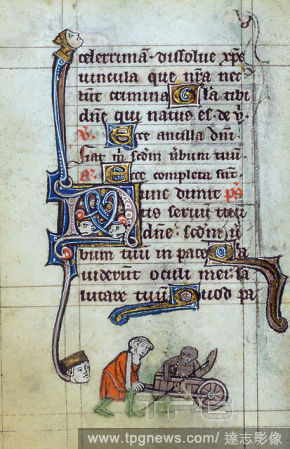 celerrimā· dissolue xp̄e
uincula que nr̄a nec
tūt crimina Gl̄a tibi
dn̄e qui natus es de ỹ
V̄· Ecce ancilla dn̄i·
fiat m̄ scd̄m ūbum tuū·
a· Ecce completa sūt
Nunc dimit pa
tis seruū tuū
dn̄e: scd̄m ū
bum tuū in pace Q̄a
uiderūt oculi mei: sa
lutare tuū Quod pa
www.tpgnews.com/ 達志影像